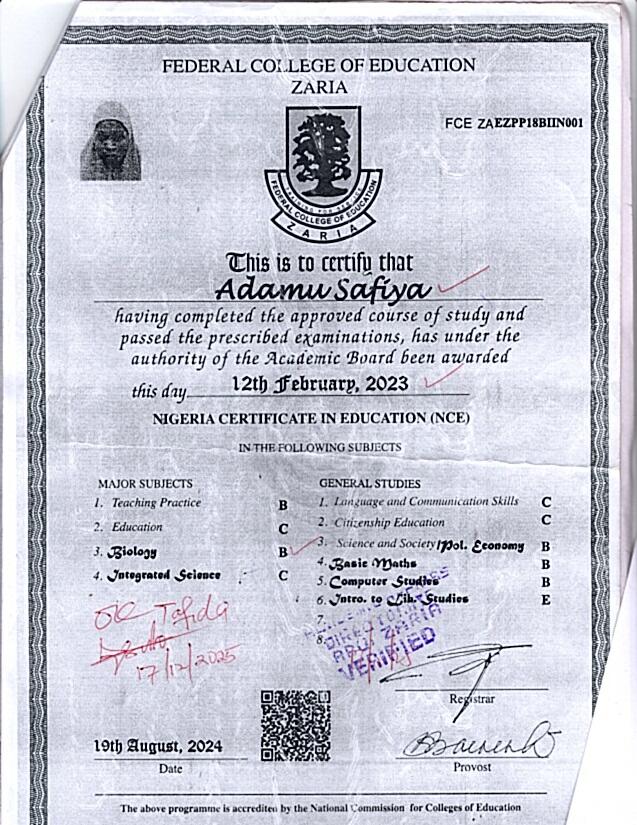 FEDERAL COLLEGE OF EDUCATION
ZARIA
FCE ZAEZPP18BIIN001
FEDERAL COLLEGE OF EDUCATION
ZARIA
This is to certify that
Adamu Safiya
having completed the approved course of study and
passed the prescribed examinations, has under the
authority of the Academic Board been awarded
this day 12th February, 2023
NIGERIA CERTIFICATE IN EDUCATION (NCE)
IN THE FOLLOWING SUBJECTS
MAJOR SUBJECTS
1. Teaching Practice B
2. Education C
3. Biology B
4. Integrated Science C
GENERAL STUDIES
1. Language and Communication Skills C
2. Citizenship Education C
3. Science and Society/Pol. Economy B
4. Basic Maths B
5. Computer Studies B
6. Intro. to Lib. Studies E
7.
8.
OK Tafida
17/12/2025
ZARIA
VERIFIED
Registrar
19th August, 2024
Date
Provost
The above programme is accredited by the National Commission for Colleges of Education